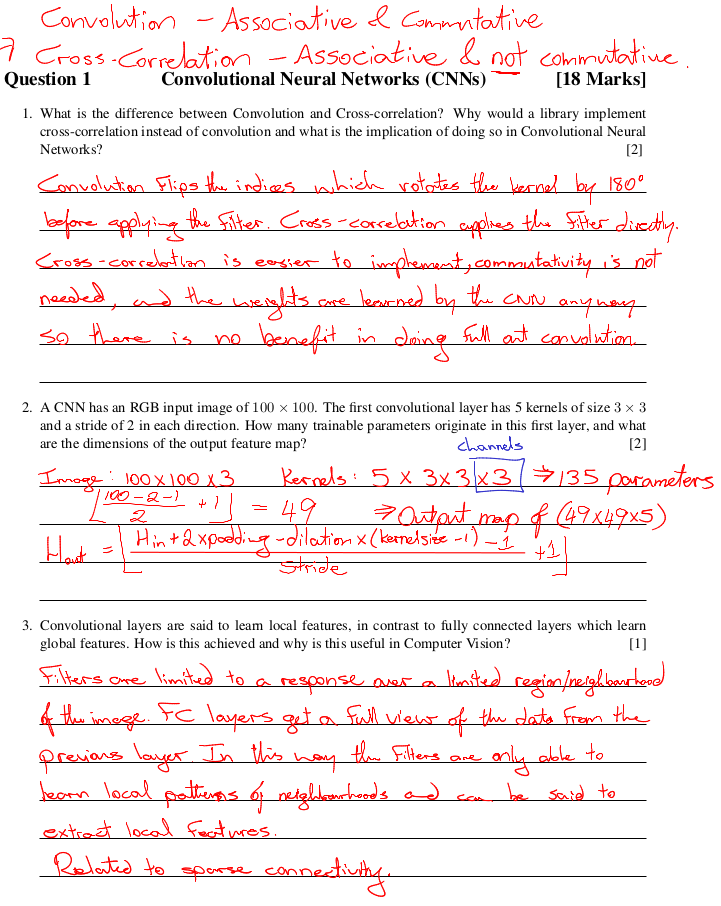 Convolution - Associative & Commutative
? Cross-Correlation - Associative & not commutative.
Question 1 Convolutional Neural Networks (CNNs) [18 Marks]
1. What is the difference between Convolution and Cross-correlation? Why would a library implement
cross-correlation instead of convolution and what is the implication of doing so in Convolutional Neural
Networks? [2]
Convolution flips the indices which rotates the kernel by 180°
before applying the filter. Cross-correlation applies the filter directly.
Cross-correlation is easier to implement, commutativity is not
needed, and the weights are learned by the CNN anyway
so there is no benefit in doing full out convolution.
2. A CNN has an RGB input image of 100 × 100. The first convolutional layer has 5 kernels of size 3 × 3
and a stride of 2 in each direction. How many trainable parameters originate in this first layer, and what
are the dimensions of the output feature map? [2]
channels
Image: 100×100×3 Kernels: 5 × 3×3 ×3 ⇒ 135 parameters
⌊(100-2-1)/2 + 1⌋ = 49 ⇒ Output map of (49×49×5)
H_out = ⌊(H_in + 2×padding - dilation×(kernelsize -1) -1)/stride +1⌋
3. Convolutional layers are said to learn local features, in contrast to fully connected layers which learn
global features. How is this achieved and why is this useful in Computer Vision? [1]
Filters are limited to a response over a limited region/neighbourhood
of the image. FC layers get a full view of the data from the
previous layer. In this way the filters are only able to
learn local patterns of neighbourhoods and can be said to
extract local features.
Related to sparse connectivity.